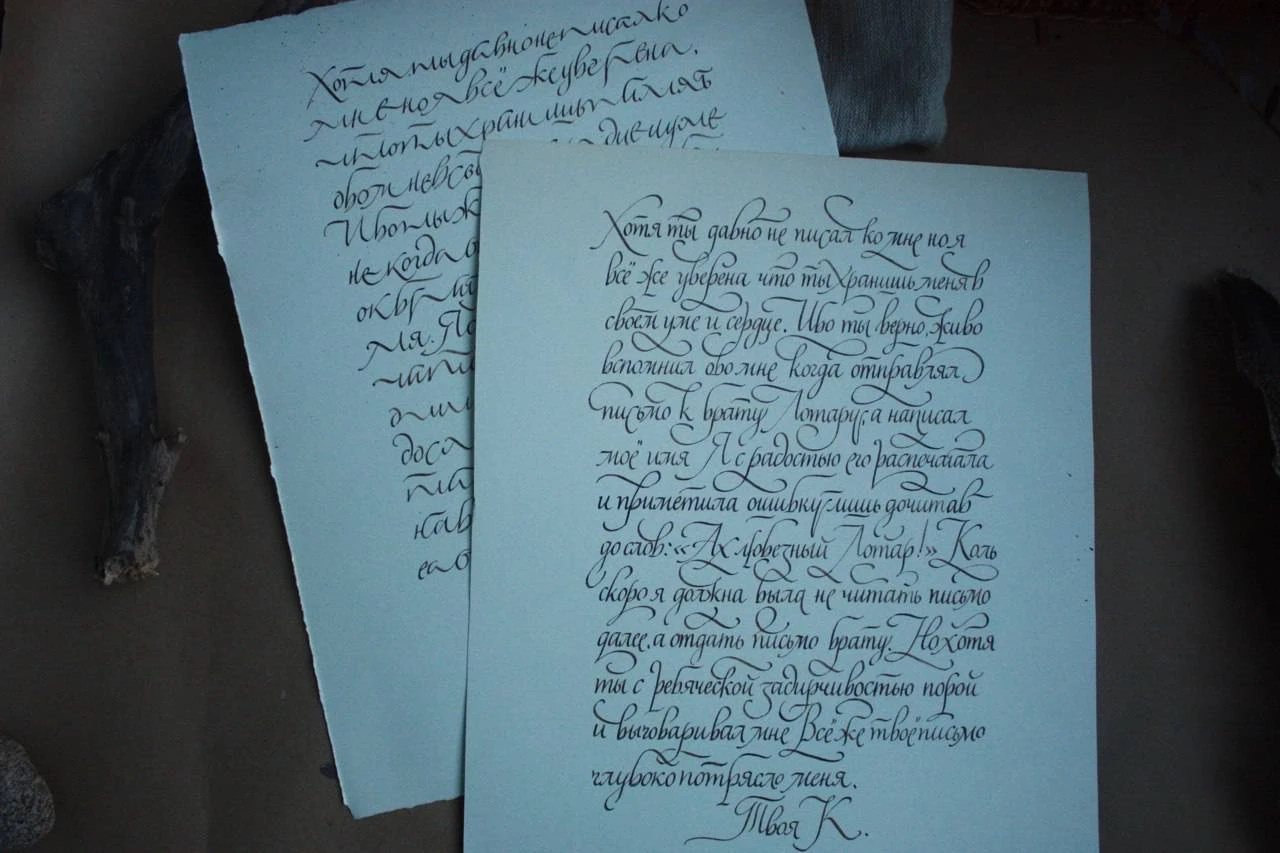 Хотя ты давно не писал ко
мне но я всё же уверена,
что ты хранишь память
обо мне в сво
И бо ты ж
не когда о
мя. По
Хотя ты давно не писал ко мне но я
всё же уверена что ты хранишь меня в
своем уме и сердце. Ибо ты верно, живо
вспомнил обо мне когда отправлял
письмо к брату Лотару, а написал
моё имя Я с радостью его распечатала
и приметила ошибку лишь дочитав
до слов: «Ах любезный Лотар!» Коль
скоро я должна была не читать письмо
далее, а отдать письмо брату. Но хотя
ты с ребяческой задирчивостью порой
и выговаривал мне Всё же твоё письмо
глубоко потрясло меня.
Твоя К.